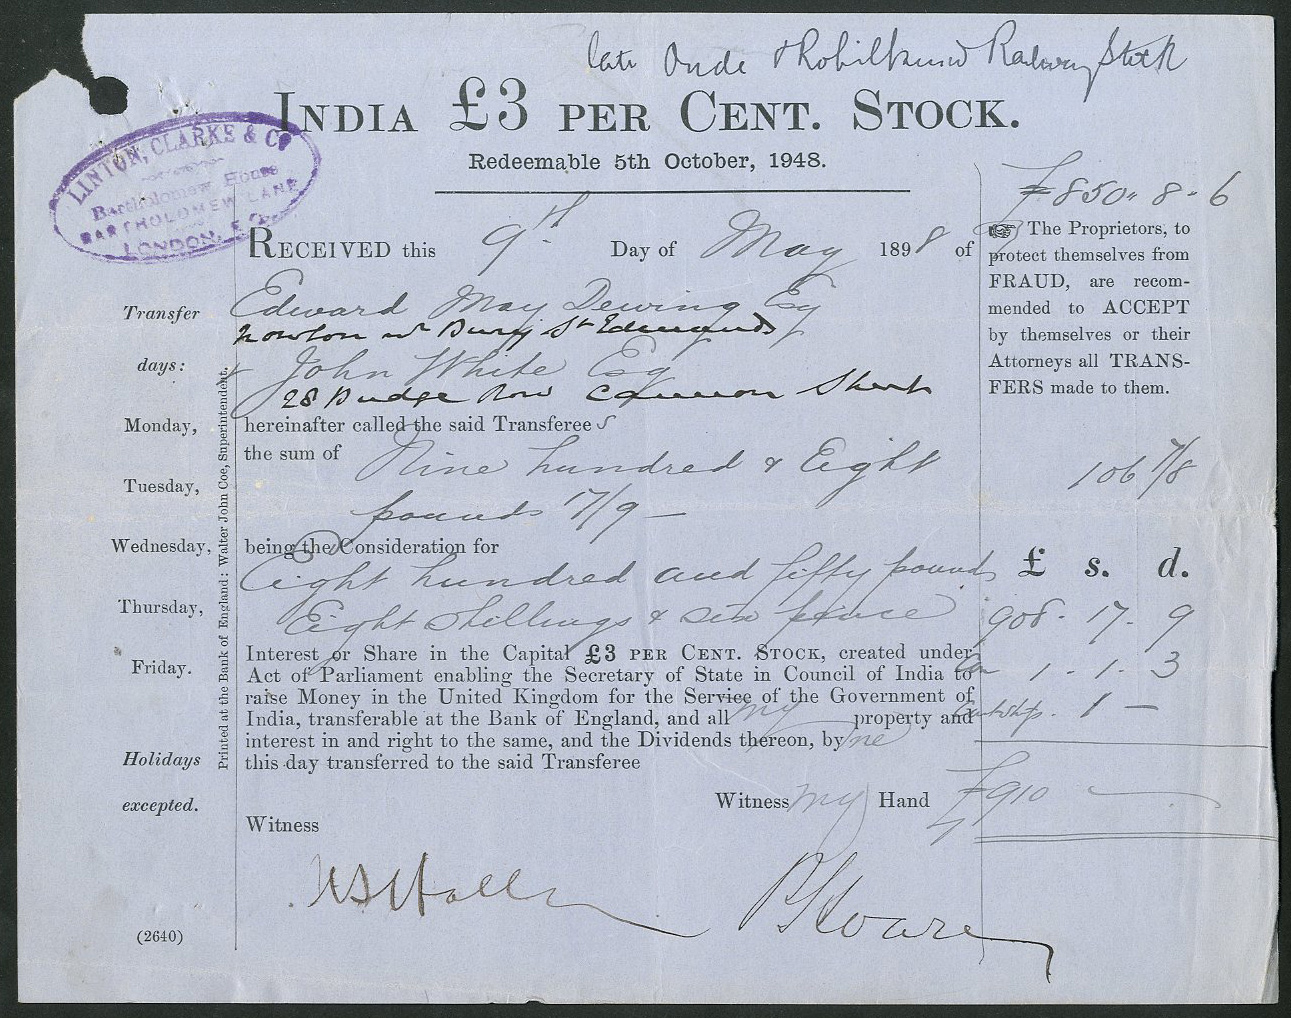 late Oude & Rohilkund Railway Stock
INDIA £3 PER CENT. STOCK.
Redeemable 5th October, 1948.
LINTON, CLARKE & Co
Bartholomew House
BARTHOLOMEW LANE
LONDON, E.C.
£850 " 8 - 6
RECEIVED this 9th Day of May 1898 of
Edward May Dewing Esq
Nowton nr Bury St Edmunds
& John White Esq
28 Budge Row Cannon Street
hereinafter called the said Transferees
the sum of Nine hundred & Eight
pounds 17/9 —
being the Consideration for
Eight hundred and fifty pounds
Eight shillings & six pence
Interest or Share in the Capital £3 PER CENT. STOCK, created under
Act of Parliament enabling the Secretary of State in Council of India to
raise Money in the United Kingdom for the Service of the Government of
India, transferable at the Bank of England, and all my property and
interest in and right to the same, and the Dividends thereon, by me
this day transferred to the said Transferee
Witness my Hand
Witness
Transfer
days:
Monday,
Tuesday,
Wednesday,
Thursday,
Friday.
Holidays
excepted.
(2640)
Printed at the Bank of England: Walter John Coe, Superintendent.
☞ The Proprietors, to
protect themselves from
FRAUD, are recom-
mended to ACCEPT
by themselves or their
Attorneys all TRANS-
FERS made to them.
106 7/8
£ s. d.
908 - 17 - 9
1 - 1 - 3
1 —
£910 —